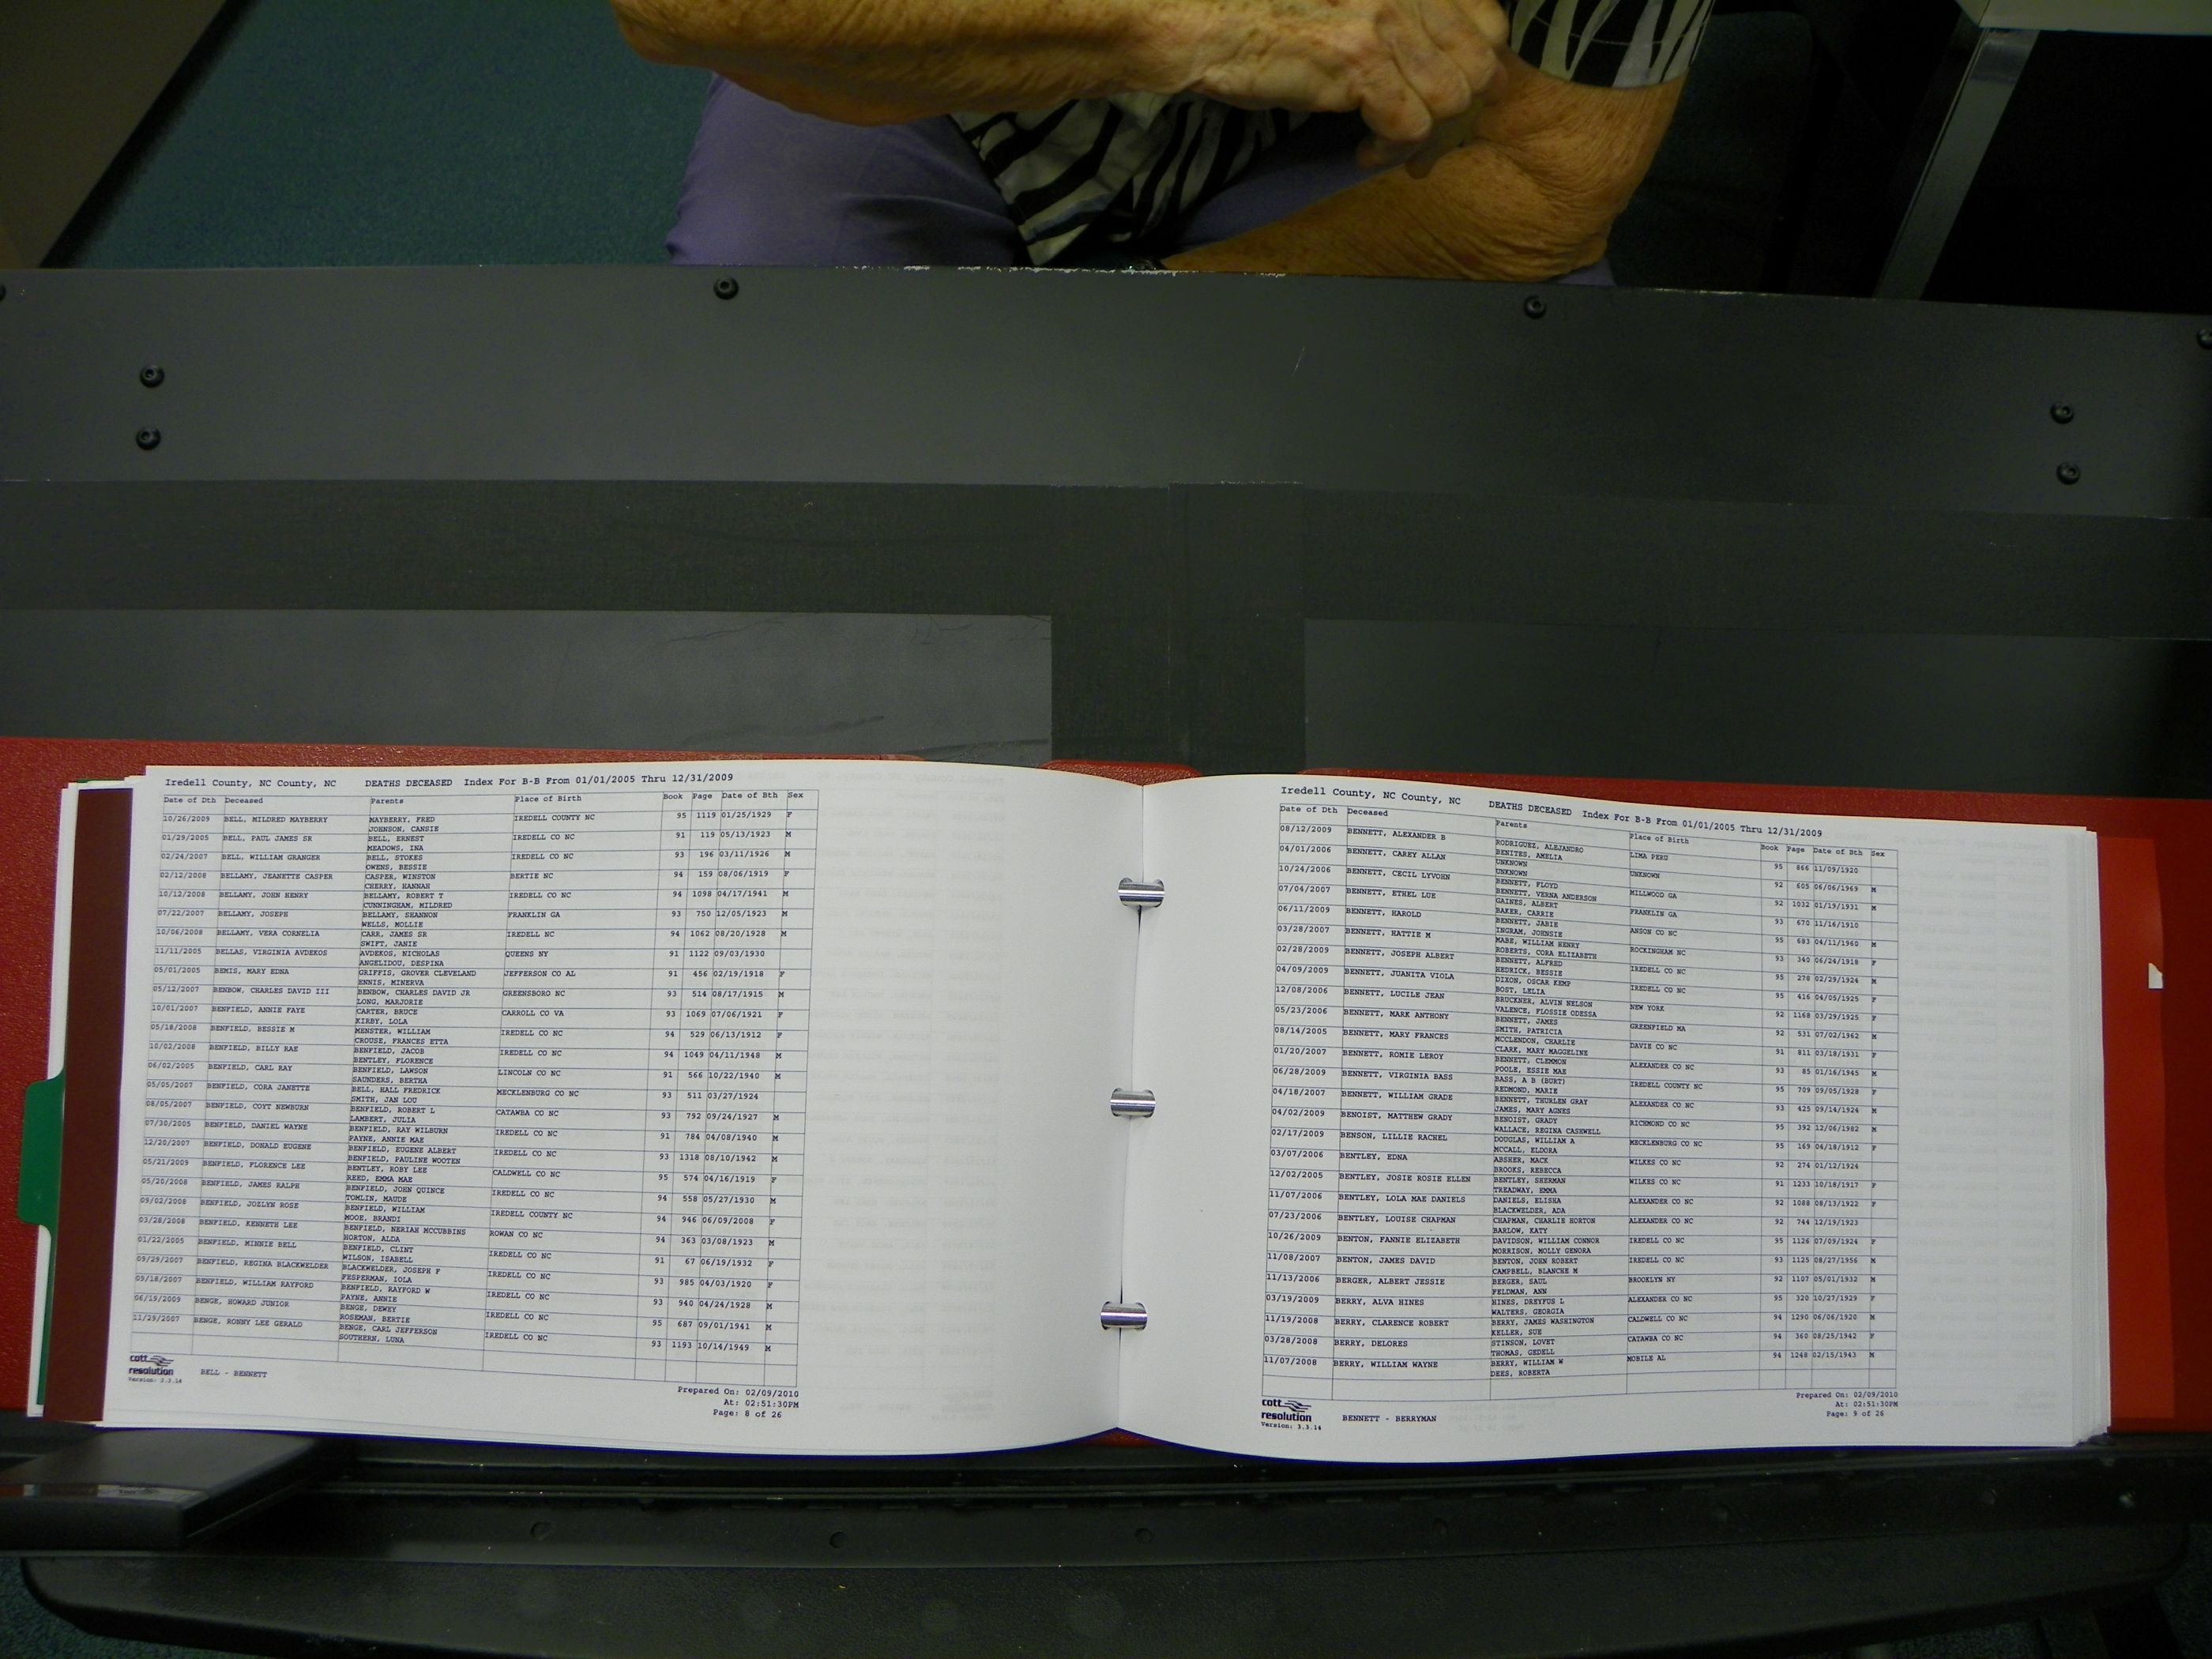 Iredell County, NC County, NC DEATHS DECEASED Index For B-B From 01/01/2005 Thru 12/31/2009
Date of Dth Deceased Parents Place of Birth Book Page Date of Bth Sex
10/26/2009 BELL, MILDRED MAYBERRY MAYBERRY, FRED IREDELL COUNTY NC 95 1119 01/25/1929 F
JOHNSON, CANSIE
01/29/2005 BELL, PAUL JAMES SR BELL, ERNEST IREDELL CO NC 91 119 05/13/1923 M
MEADOWS, INA
02/24/2007 BELL, WILLIAM GRANGER BELL, STOKES IREDELL CO NC 93 196 03/11/1926 M
OWENS, BESSIE
02/12/2008 BELLAMY, JEANETTE CASPER CASPER, WINSTON BERTIE NC 94 159 08/06/1919 F
CHERRY, HANNAH
10/12/2008 BELLAMY, JOHN HENRY BELLAMY, ROBERT T IREDELL CO NC 94 1098 04/17/1941 M
CUNNINGHAM, MILDRED
07/22/2007 BELLAMY, JOSEPH BELLAMY, SHANNON FRANKLIN GA 93 750 12/05/1923 M
WELLS, MOLLIE
10/06/2008 BELLAMY, VERA CORNELIA CARR, JAMES SR IREDELL NC 94 1062 08/20/1928 M
SWIFT, JANIE
11/11/2005 BELLAS, VIRGINIA AVDEKOS AVDEKOS, NICHOLAS QUEENS NY 91 1122 09/03/1930
ANGELIDOU, DESPINA
05/01/2005 BEMIS, MARY EDNA GRIFFIS, GROVER CLEVELAND JEFFERSON CO AL 91 456 02/19/1918 F
ENNIS, MINERVA
05/12/2007 BENBOW, CHARLES DAVID III BENBOW, CHARLES DAVID JR GREENSBORO NC 93 514 08/17/1915 M
LONG, MARJORIE
10/01/2007 BENFIELD, ANNIE FAYE CARTER, BRUCE CARROLL CO VA 93 1069 07/06/1921 F
KIRBY, LOLA
05/18/2008 BENFIELD, BESSIE M MENSTER, WILLIAM IREDELL CO NC 94 529 06/13/1912 F
CROUSE, FRANCES ETTA
10/02/2008 BENFIELD, BILLY RAE BENFIELD, JACOB IREDELL CO NC 94 1049 04/11/1948 M
BENTLEY, FLORENCE
06/02/2005 BENFIELD, CARL RAY BENFIELD, LAWSON LINCOLN CO NC 91 566 10/22/1940 M
SAUNDERS, BERTHA
05/05/2007 BENFIELD, CORA JANETTE BELL, HALL FREDRICK MECKLENBURG CO NC 93 511 03/27/1924
SMITH, JAN LOU
08/05/2007 BENFIELD, COYT NEWBURN BENFIELD, ROBERT L CATAWBA CO NC 93 792 09/24/1927 M
LAMBERT, JULIA
07/30/2005 BENFIELD, DANIEL WAYNE BENFIELD, RAY WILBURN IREDELL CO NC 91 784 04/08/1940 M
PAYNE, ANNIE MAE
12/20/2007 BENFIELD, DONALD EUGENE BENFIELD, EUGENE ALBERT IREDELL CO NC 93 1318 08/10/1942 M
BENFIELD, PAULINE WOOTEN
05/21/2009 BENFIELD, FLORENCE LEE BENTLEY, ROBY LEE CALDWELL CO NC 95 574 04/16/1919 F
REED, EMMA MAE
05/20/2008 BENFIELD, JAMES RALPH BENFIELD, JOHN QUINCE IREDELL CO NC 94 558 05/27/1930 M
TOMLIN, MAUDE
09/02/2008 BENFIELD, JOZLYN ROSE BENFIELD, WILLIAM IREDELL COUNTY NC 94 946 06/09/2008 F
MOOE, BRANDI
03/28/2008 BENFIELD, KENNETH LEE BENFIELD, NERIAH MCCUBBINS ROWAN CO NC 94 363 03/08/1923 M
HORTON, ALDA
01/22/2005 BENFIELD, MINNIE BELL BENFIELD, CLINT IREDELL CO NC 91 67 06/19/1932 F
WILSON, ISABELL
09/29/2007 BENFIELD, REGINA BLACKWELDER BLACKWELDER, JOSEPH F IREDELL CO NC 93 985 04/03/1920 F
FESPERMAN, IOLA
09/18/2007 BENFIELD, WILLIAM RAYFORD BENFIELD, RAYFORD W IREDELL CO NC 93 940 04/24/1928 M
PAYNE, ANNIE
06/19/2009 BENGE, HOWARD JUNIOR BENGE, DEWEY IREDELL CO NC 95 687 09/01/1941 M
ROSEMAN, BERTIE
11/29/2007 BENGE, RONNY LEE GERALD BENGE, CARL JEFFERSON IREDELL CO NC 93 1193 10/14/1949 M
SOUTHERN, LUNA
cott
resolution
Version: 3.3.14
BELL - BENNETT
Prepared On: 02/09/2010
At: 02:51:30PM
Page: 8 of 26
Iredell County, NC County, NC DEATHS DECEASED Index For B-B From 01/01/2005 Thru 12/31/2009
Date of Dth Deceased Parents Place of Birth Book Page Date of Bth Sex
08/12/2009 BENNETT, ALEXANDER B RODRIGUEZ, ALEJANDRO LIMA PERU 95 866 11/09/1920
BENITES, AMELIA
04/01/2006 BENNETT, CAREY ALLAN UNKNOWN UNKNOWN 92 605 06/06/1969 M
UNKNOWN
10/24/2006 BENNETT, CECIL LYVOHN BENNETT, FLOYD MILLWOOD GA 92 1032 01/19/1931 M
BENNETT, VERNA ANDERSON
07/04/2007 BENNETT, ETHEL LUE GAINES, ALBERT FRANKLIN GA 93 670 11/16/1910
BAKER, CARRIE
06/11/2009 BENNETT, HAROLD BENNETT, JABIE ANSON CO NC 95 683 04/11/1960 M
INGRAM, JOHNSIE
03/28/2007 BENNETT, HATTIE M MABE, WILLIAM HENRY ROCKINGHAM NC 93 340 06/24/1918 F
ROBERTS, CORA ELIZABETH
02/28/2009 BENNETT, JOSEPH ALBERT BENNETT, ALFRED IREDELL CO NC 95 278 02/29/1924 M
HEDRICK, BESSIE
04/09/2009 BENNETT, JUANITA VIOLA DIXON, OSCAR KEMP IREDELL CO NC 95 416 04/05/1925 F
BOST, LELIA
12/08/2006 BENNETT, LUCILE JEAN BRUCKNER, ALVIN NELSON NEW YORK 92 1168 03/29/1925 F
VALENCE, FLOSSIE ODESSA
05/23/2006 BENNETT, MARK ANTHONY BENNETT, JAMES GREENFIELD MA 92 531 07/02/1962 M
SMITH, PATRICIA
08/14/2005 BENNETT, MARY FRANCES MCCLENDON, CHARLIE DAVIE CO NC 91 811 03/18/1931 F
CLARK, MARY MAGGELINE
01/20/2007 BENNETT, ROMIE LEROY BENNETT, CLEMMON ALEXANDER CO NC 93 85 01/16/1945 M
POOLE, ESSIE MAE
06/28/2009 BENNETT, VIRGINIA BASS BASS, A B (BURT) IREDELL COUNTY NC 95 709 09/05/1928 F
REDMOND, MARIE
04/18/2007 BENNETT, WILLIAM GRADE BENNETT, THURLEN GRAY ALEXANDER CO NC 93 425 09/14/1924 M
JAMES, MARY AGNES
04/02/2009 BENOIST, MATTHEW GRADY BENOIST, GRADY RICHMOND CO NC 95 392 12/06/1982 M
WALLACE, REGINA CASEWELL
02/17/2009 BENSON, LILLIE RACHEL DOUGLAS, WILLIAM A MECKLENBURG CO NC 95 169 04/18/1912 F
MCCALL, ELDORA
03/07/2006 BENTLEY, EDNA ABSHER, MACK WILKES CO NC 92 274 01/12/1924
BROOKS, REBECCA
12/02/2005 BENTLEY, JOSIE ROSIE ELLEN BENTLEY, SHERMAN WILKES CO NC 91 1233 10/18/1917 F
TREADWAY, EMMA
11/07/2006 BENTLEY, LOLA MAE DANIELS DANIELS, ELISHA ALEXANDER CO NC 92 1088 08/13/1922 F
BLACKWELDER, ADA
07/23/2006 BENTLEY, LOUISE CHAPMAN CHAPMAN, CHARLIE HORTON ALEXANDER CO NC 92 744 12/19/1923
BARLOW, KATY
10/26/2009 BENTON, FANNIE ELIZABETH DAVIDSON, WILLIAM CONNOR IREDELL CO NC 95 1126 07/09/1924 F
MORRISON, MOLLY GENORA
11/08/2007 BENTON, JAMES DAVID BENTON, JOHN ROBERT IREDELL CO NC 93 1125 08/27/1956 M
CAMPBELL, BLANCHE M
11/13/2006 BERGER, ALBERT JESSIE BERGER, SAUL BROOKLYN NY 92 1107 05/01/1932 M
FELDMAN, ANN
03/19/2009 BERRY, ALVA HINES HINES, DREYFUS L ALEXANDER CO NC 95 320 10/27/1929 F
WALTERS, GEORGIA
11/19/2008 BERRY, CLARENCE ROBERT BERRY, JAMES WASHINGTON CALDWELL CO NC 94 1290 06/06/1920 M
KELLER, SUE
03/28/2008 BERRY, DELORES STINSON, LOVET CATAWBA CO NC 94 360 08/25/1942 F
THOMAS, GEDELL
11/07/2008 BERRY, WILLIAM WAYNE BERRY, WILLIAM W MOBILE AL 94 1248 02/15/1943 M
DEES, ROBERTA
cott
resolution
Version: 3.3.14
BENNETT - BERRYMAN
Prepared On: 02/09/2010
At: 02:51:30PM
Page: 9 of 26